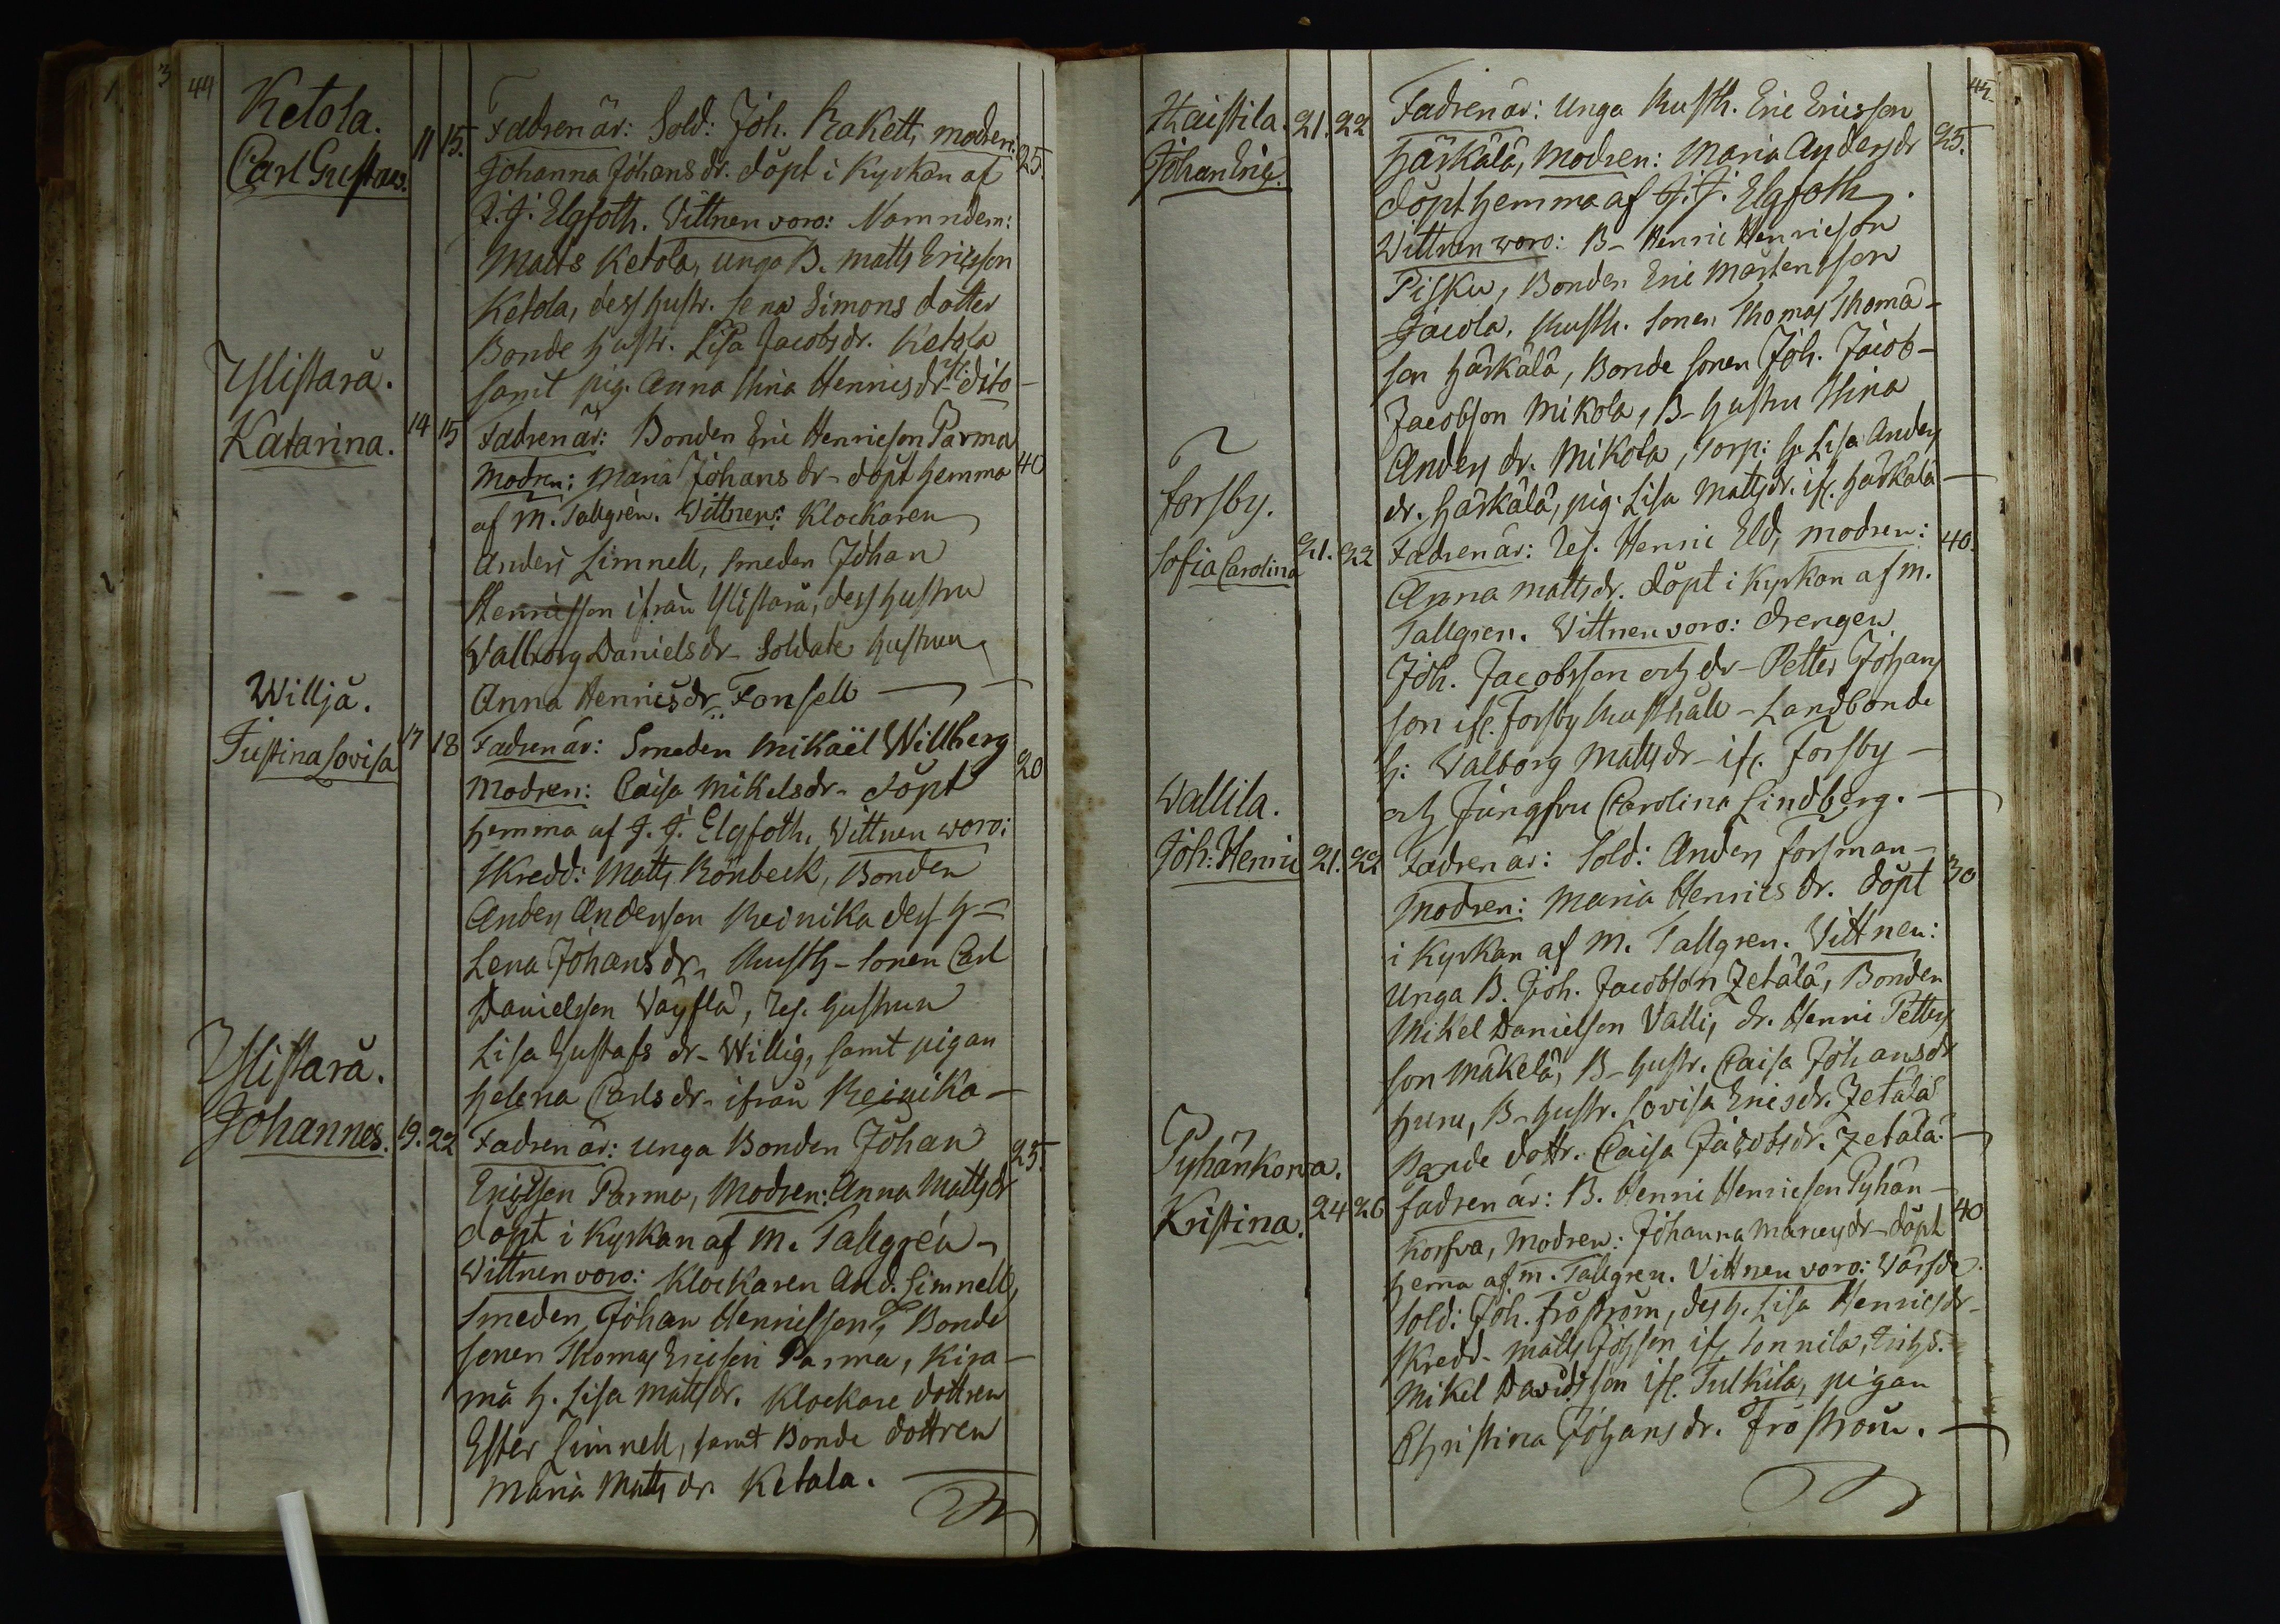 44
Ketola.
Carl Gustaes.
11 15.
Fadren är: Sold: Joh. Rakett, modren:
25.
Johanna Johans dr. döpt i Kyrkan af
J. J. Elgfoth. Vittnen voro: Nämndem:
Matts Ketola, unga B. Matts Ericsson
Ketola, dess hustr. Lena Simons dotter
Bonde hustr. Lisa Jacobs dr. Ketola
samt pig. Anna Stina Henrics dr. if. dito -
Ylistarå.
Katarina.
14 15
Fadren är: Bonden Eric Henricson Parma
40
Modren: Maria Johans dr - döpt hemma
af M. Tallgrén. Vittnen: Klockaren
Anders Limnell, Smeden Johan
Henricsson ifrån Ylistarå, dess hustru
Valborg Daniels dr - Soldate hustrun
Anna Henrics dr Fonsell -
Willjå.
Justina Lovisa
17 18
Fadren är: Smeden Mikaël Willberg
20
Modren: Caisa Mikels dr - döpt
hemma af J. J. Elgfoth. Vittnen woro:
Skredd: Matts Rönbeck, Bonden
Anders Anderson Reinika dess h -
Lena Johans dr, Rusth - Sonen Carl
Danielsson Wäyflå, Res. hustrun
Lisa Gustafs dr - Willig, samt pigan
Helena Carls dr - ifrån Reinika -
Ylistarå.
Johannes.
19. 22
Fadren är: unga Bonden Johan
25.
Ericsson Parma, Modren: Anna Matts dr
döpt i Kyrkan af M. Tallgrén -
Vittnen voro: Klockaren And. Limnell,
Smeden Johan Henricsson, Bonde
sonen Thomas Ericson Parma, Kira-
må h. Lisa Matts dr. Klockare dottren
Ester Limnell, samt Bonde dottren
Maria Matts dr. Ketala.
45.
Kaistila.
Johan Eric.
21. 22
Fadren är: Unga Rusth. Eric Ericsson
25.
Härkälä, Modren: Maria Anders dr
döpt hemma af J. J. Elgfoth.
Vittnen woro: B - Henric Henricson
Pisku, Bonden Eric Mårtensson
Jacola, Rusth. Sonen Thomas Thoma-
son Härkälä, Bonde Sonen Joh. Jacob-
Jacobson Mikola, B - hustru Stina
Anders dr. Mikola, Torp: h. Lisa Anders
dr. Härkälä, pig. Lisa Matts dr. if. Härkälä -
Forsby.
Sofia Carolina
21. 22
Fadren är: Res. Henric Eld, modren:
40.
Anna Matts dr. döpt i Kyrkan af M.
Tallgren. Vittnen voro: drengen
Joh. Jacobsson och dr - Petter Johans
son if. Forsby Rusthåll - Landbonde
h: Valborg Matts dr - if. Forsby -
och Jungfru Carolina Lindberg. -
Wallila.
Joh: Henric
21. 22
Fadren är: Sold: Anders Forsman -
30
Modren: Maria Henrics dr. döpt
i Kyrkan af M. Tallgren. Vittnen:
Unga B. Joh. Jacobson Zetälä, Bonden
Mikel Danielson Valli, dr. Henric Petters
son Mäkelä, B - hustr. Caisa Johans dr
Huru, B - hustr. Lovisa Erics dr. Zetälä
Bonde dottr. Caisa Jacobs dr. Zetälä. -
Pyhänkorva.
Kristina.
24 26
Fadren är: B. Henric Henricson Pyhän-
40
korfva, Modren: Johanna dr - döpt
hema af M. Tallgren. Vittnen voro:
Sold: Joh. Froström, dess h. Lisa Henrics dr -
Skredd - Matts Johson if. Sonnila,
Mikel Davidsson if. Tulkila, pigan
Christina Johans dr. Froström. -